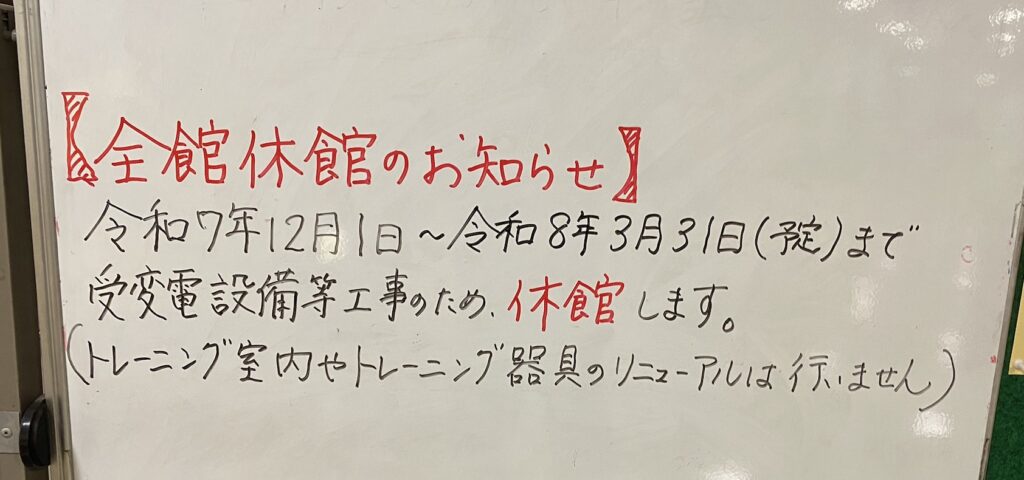 【全館休館のお知らせ】
令和7年12月1日～令和8年3月31日(予定)まで
受変電設備等工事のため、休館します。
(トレーニング室内やトレーニング器具のリニューアルは行いません)